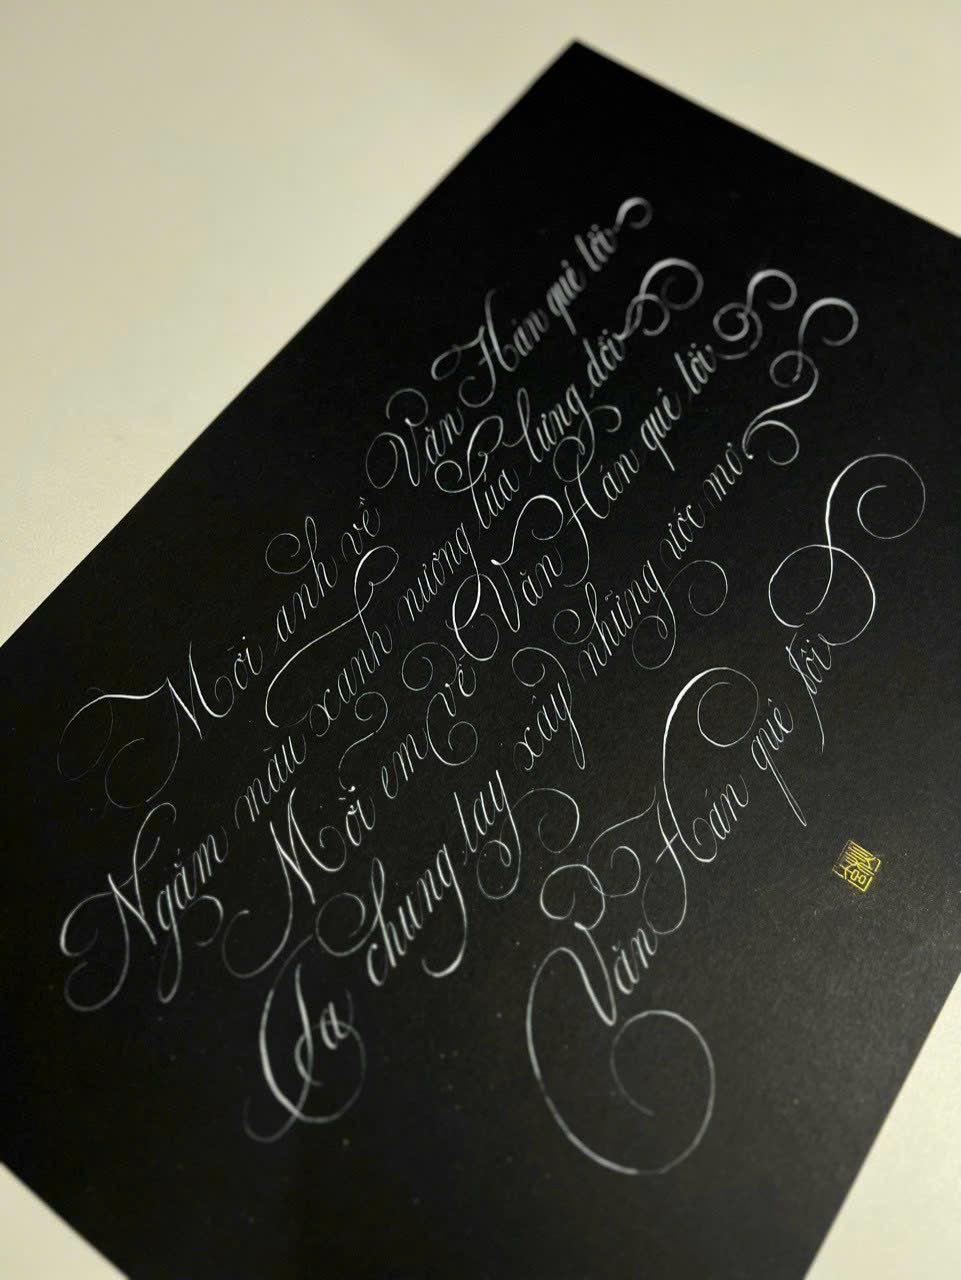 Mời anh về Văn Hán quê tôi
Ngắm màu xanh nương lúa lưng đồi
Mời em về Văn Hán quê tôi
Ta chung tay xây những ước mơ
Văn Hán quê tôi